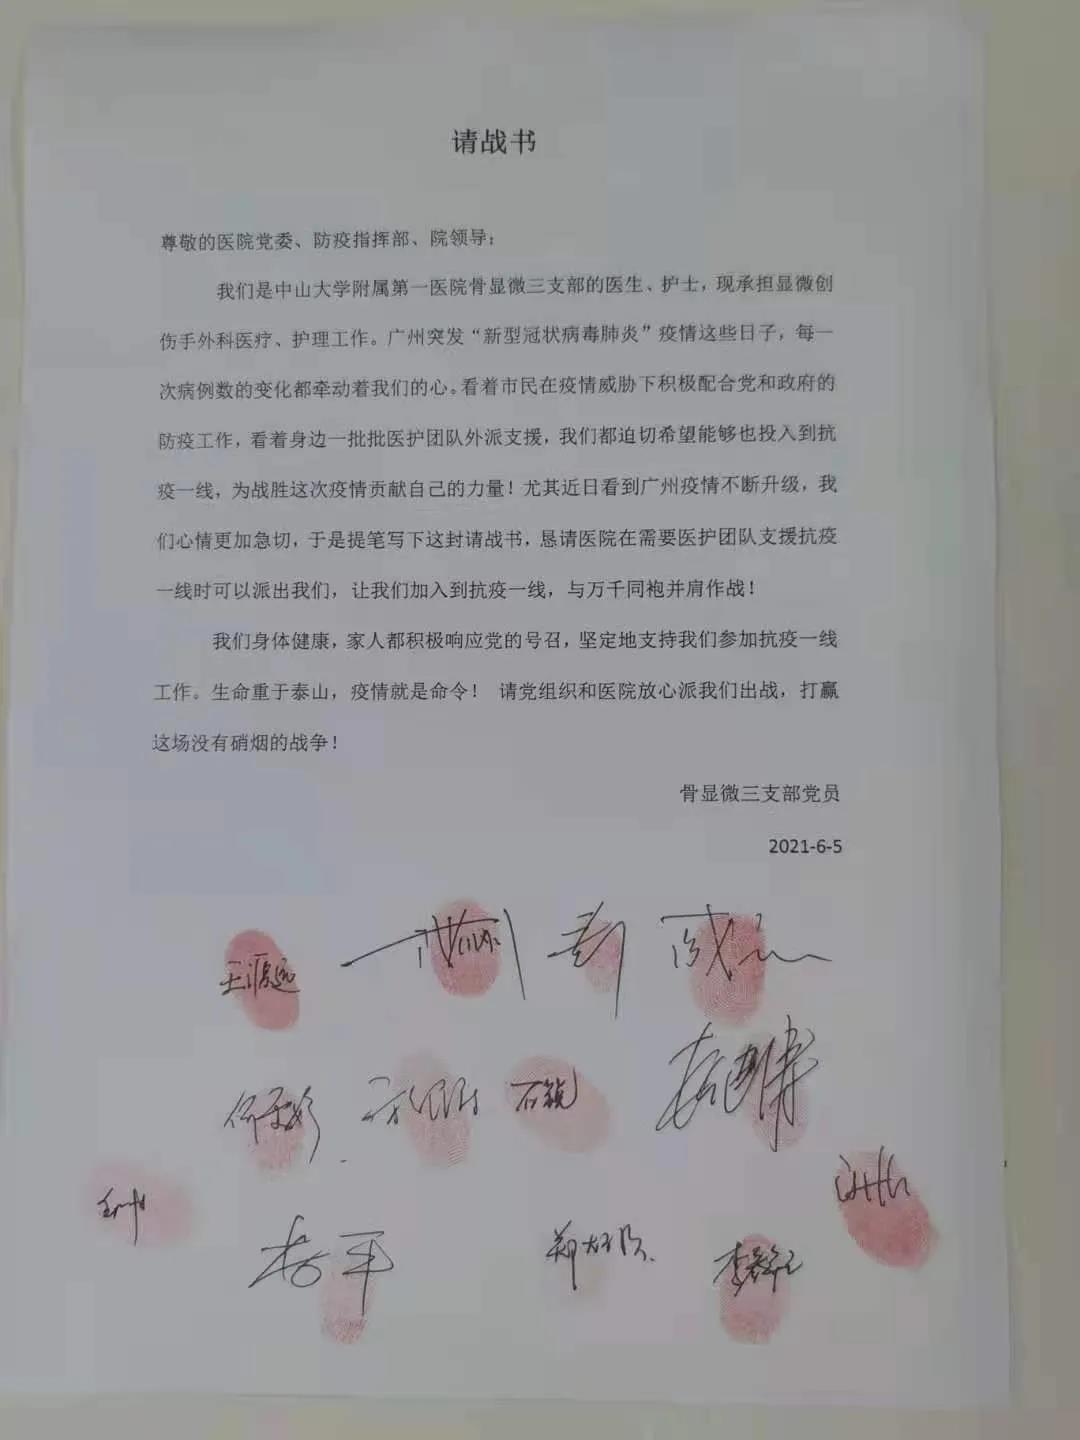 请战书
尊敬的医院党委、防疫指挥部、院领导：
我们是中山大学附属第一医院骨显微三支部的医生、护士，现承担显微创
伤手外科医疗、护理工作。广州突发“新型冠状病毒肺炎”疫情这些日子，每一
次病例数的变化都牵动着我们的心。看着市民在疫情威胁下积极配合党和政府的
防疫工作，看着身边一批批医护团队外派支援，我们都迫切希望能够也投入到抗
疫一线，为战胜这次疫情贡献自己的力量！尤其近日看到广州疫情不断升级，我
们心情更加急切，于是提笔写下这封请战书，恳请医院在需要医护团队支援抗疫
一线时可以派出我们，让我们加入到抗疫一线，与万千同袍并肩作战！
我们身体健康，家人都积极响应党的号召，坚定地支持我们参加抗疫一线
工作。生命重于泰山，疫情就是命令！ 请党组织和医院放心派我们出战，打赢
这场没有硝烟的战争！
骨显微三支部党员
2021-6-5